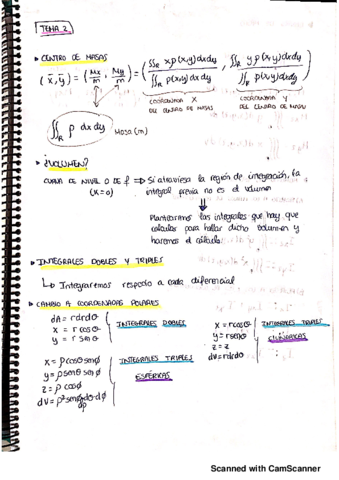 TEMA 2
▸ CENTRO DE MASAS
(x̄, ȳ) = (Mx/m, My/m) = (∬_R xρ(x,y)dxdy / ∬_R ρ(x,y)dxdy , ∬_R yρ(x,y)dxdy / ∬_R ρ(x,y)dxdy)
COORDENADA X DEL CENTRO DE MASAS
COORDENADA Y DEL CENTRO DE MASAS
∬_R ρ dxdy MASA (m)
▸ ¿VOLUMEN?
CURVA DE NIVEL 0 DE f ⇒ Si atraviesa la región de integración, la
(k=0) integral previa no es el volumen
⇓
Plantearemos las integrales que hay que
calcular para hallar dicho volumen y
haremos el cálculo
▸ INTEGRALES DOBLES Y TRIPLES
↳ Integraremos respecto a cada diferencial
▸ CAMBIO A COORDENADAS POLARES
dA = rdrdθ
x = r cosθ
y = r senθ
INTEGRALES DOBLES
x = rcosθ
y = rsenθ
z = z
dV = rdrdθ
INTEGRALES TRIPLES
CILÍNDRICAS
x = ρcosθ senϕ
y = ρsenθ senϕ
z = ρ cosϕ
dV = ρ² senϕ dθ dϕ
dρ
INTEGRALES TRIPLES
ESFÉRICAS
Scanned with CamScanner